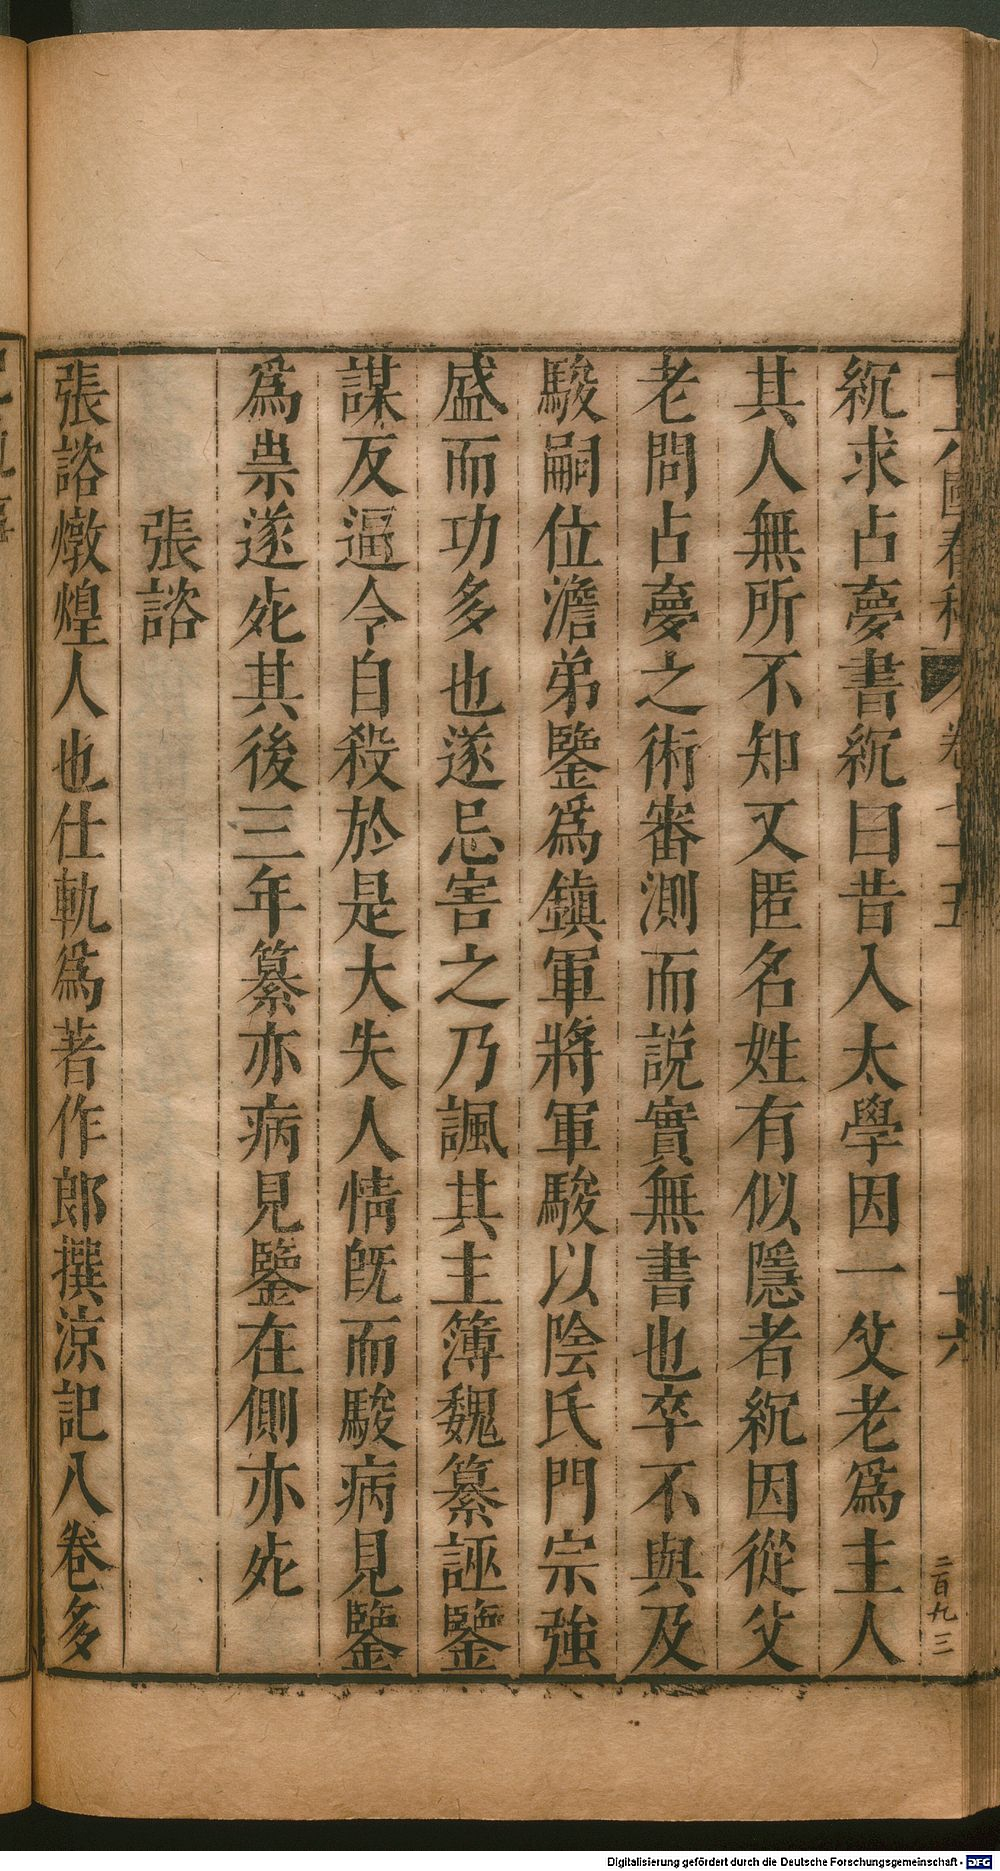 紞求占夢書紞曰昔入太學因一父老為主人
其人無所不知又匿名姓有似隱者紞因從父
老問占夢之術審測而説實無書也卒不與及
駿嗣位澹弟鑒為鎮軍將軍駿以陰氏門宗強
盛而功多也遂忌害之乃諷其主簿魏纂誣鑒
謀反逼令自殺於是大失人情既而駿病見鑒
為祟遂死其後三年纂亦病見鑒在側亦死
張諮
張諮燉煌人也仕軌為著作郎撰涼記八卷多
二百九三
Digitalisierung gefördert durch die Deutsche Forschungsgemeinschaft - DFG